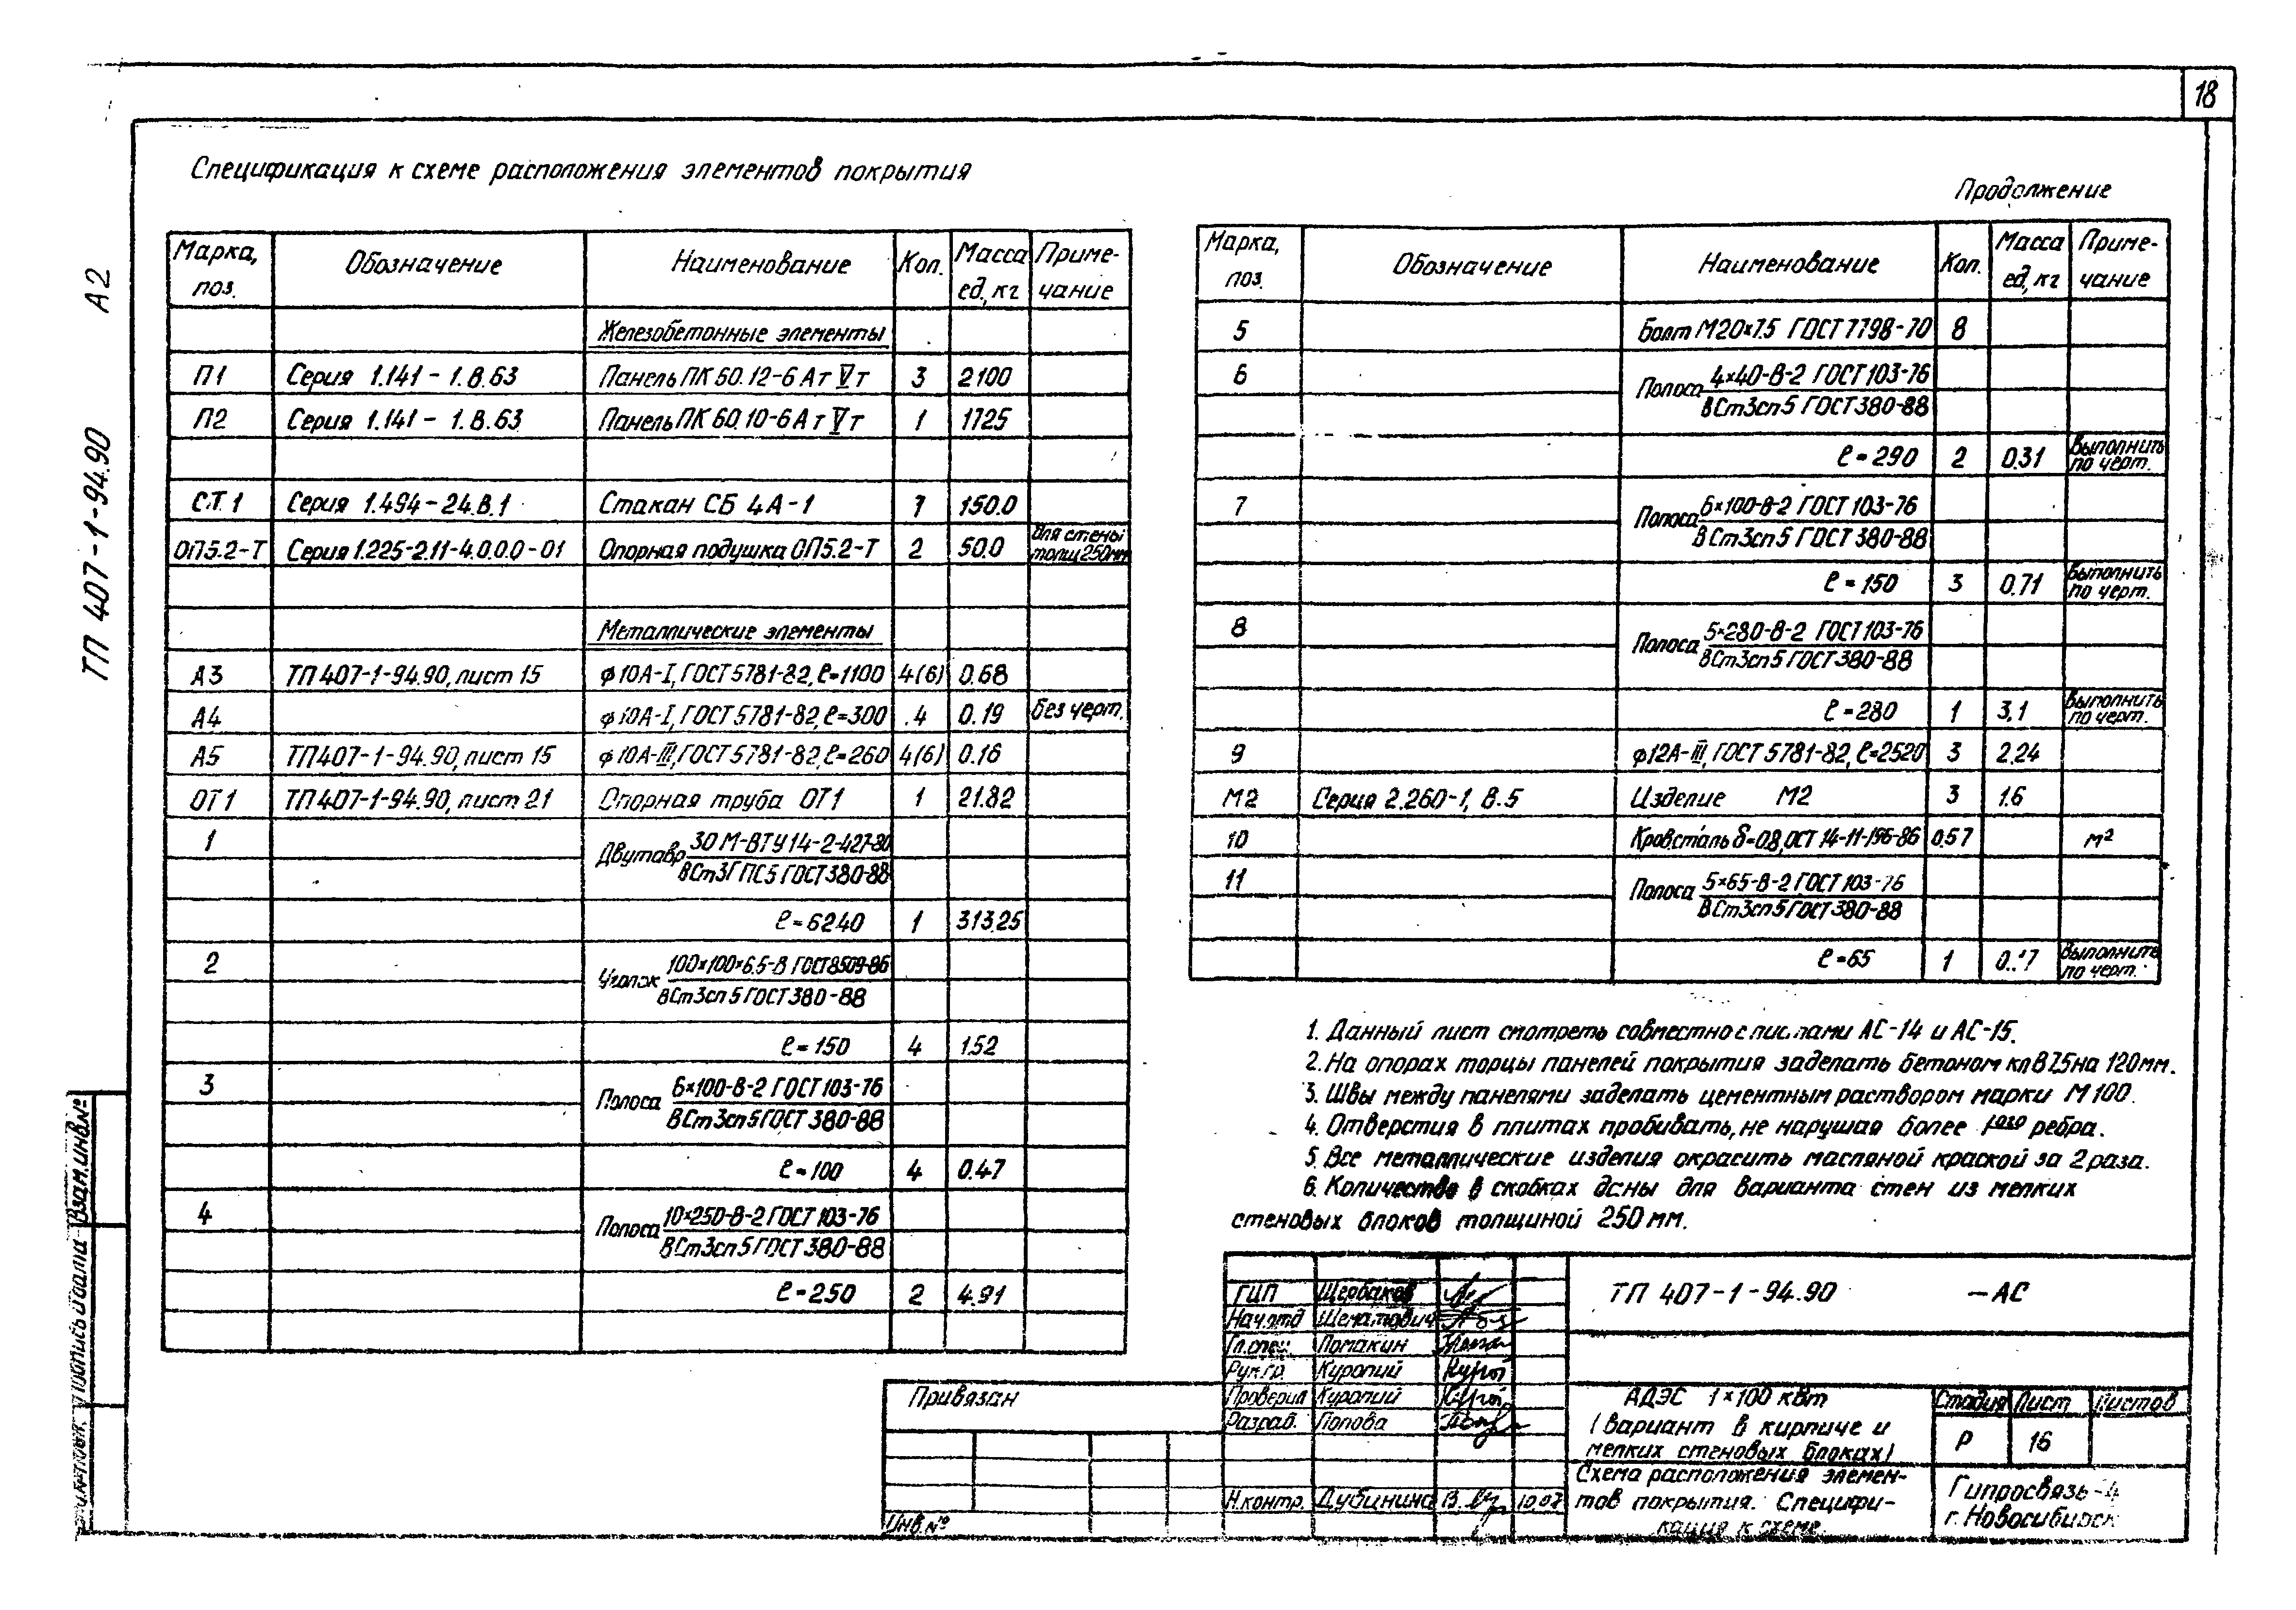 18
ТП 407-1-94.90 А2
Спецификация к схеме расположения элементов покрытия
Марка, поз. Обозначение Наименование Кол. Масса ед., кг Приме-чание
Железобетонные элементы
П1 Серия 1.141-1.в.63 Панель ПК 60.12-6 Ат V т 3 2100
П2 Серия 1.141-1.в.63 Панель ПК 60.10-6 Ат V т 1 1725
СТ.1 Серия 1.494-24.в.1 Стакан СБ 4А-1 1 150.0
ОП5.2-Т Серия 1.225-2.11-4.0.0.0-01 Опорная подушка ОП5.2-Т 2 50.0 Для стены толщ 250мм
Металлические элементы
А3 ТП 407-1-94.90, лист 15 ф10А-I, ГОСТ 5781-82, ℓ=1100 4(6) 0.68
А4 ф10А-I, ГОСТ 5781-82, ℓ=300 4 0.19 без черт.
А5 ТП 407-1-94.90, лист 15 ф10А-III, ГОСТ 5781-82, ℓ=260 4(6) 0.16
ОТ1 ТП 407-1-94.90, лист 21 Опорная труба ОТ1 1 21.82
1 Двутавр 30 М-ВТУ14-2-427-80
ВСт3ГПС5 ГОСТ 380-88
ℓ=6240 1 313.25
2 Уголок 100×100×6.5-В ГОСТ 8509-86
ВСт3сп5 ГОСТ 380-88
ℓ=150 4 1.52
3 Полоса 6×100-В-2 ГОСТ 103-76
ВСт3сп5 ГОСТ 380-88
ℓ=100 4 0.47
4 Полоса 10×250-В-2 ГОСТ 103-76
ВСт3сп5 ГОСТ 380-88
ℓ=250 2 4.91
Продолжение
Марка, поз. Обозначение Наименование Кол. Масса ед., кг Приме-чание
5 Болт М20×75 ГОСТ 7798-70 8
6 Полоса 4×40-В-2 ГОСТ 103-76
ВСт3сп5 ГОСТ 380-88
ℓ=290 2 0.31 Выполнить по черт.
7 Полоса 6×100-В-2 ГОСТ 103-76
ВСт3сп5 ГОСТ 380-88
ℓ=150 3 0.71 Выполнить по черт.
8 Полоса 5×280-В-2 ГОСТ 103-76
ВСт3сп5 ГОСТ 380-88
ℓ=280 1 3,1 Выполнить по черт.
9 ф12А-III, ГОСТ 5781-82, ℓ=2520 3 2.24
М2 Серия 2.260-1, в.5 Изделие М2 3 1.6
10 Кров.сталь δ=0.8, ОСТ 14-11-196-86 0.57 м²
11 Полоса 5×65-В-2 ГОСТ 103-76
ВСт3сп5 ГОСТ 380-88
ℓ=65 1 Выполнить по черт.
1. Данный лист смотреть совместно с листами АС-14 и АС-15.
2. На опорах торцы панелей покрытия заделать бетоном кл В7,5 на 120мм.
3. Швы между панелями заделать цементным раствором марки М100.
4. Отверстия в плитах пробивать, не нарушая более 1ого ребра.
5. Все металлические изделия окрасить масляной краской за 2 раза.
6. Количество в скобках даны для варианта стен из мелких
стеновых блоков толщиной 250мм.
ГИП Щербаков
Нач.отд Шематович
Гл.спец. Ломакин
Рук.гр. Куропий
Проверил Куропий
Разраб. Попова
Н.контр. Дубинина 10.07
ТП 407-1-94.90 -АС
АДЭС 1×100 кВт
(вариант в кирпиче и
мелких стеновых блоках)
Стадия Лист Листов
Р 16
Схема расположения элемен-
тов покрытия. Специфи-
кация к схеме.
Гипросвязь-4
г. Новосибирск
Привязан
Инв.№
Взам.инв.№
Подпись и дата